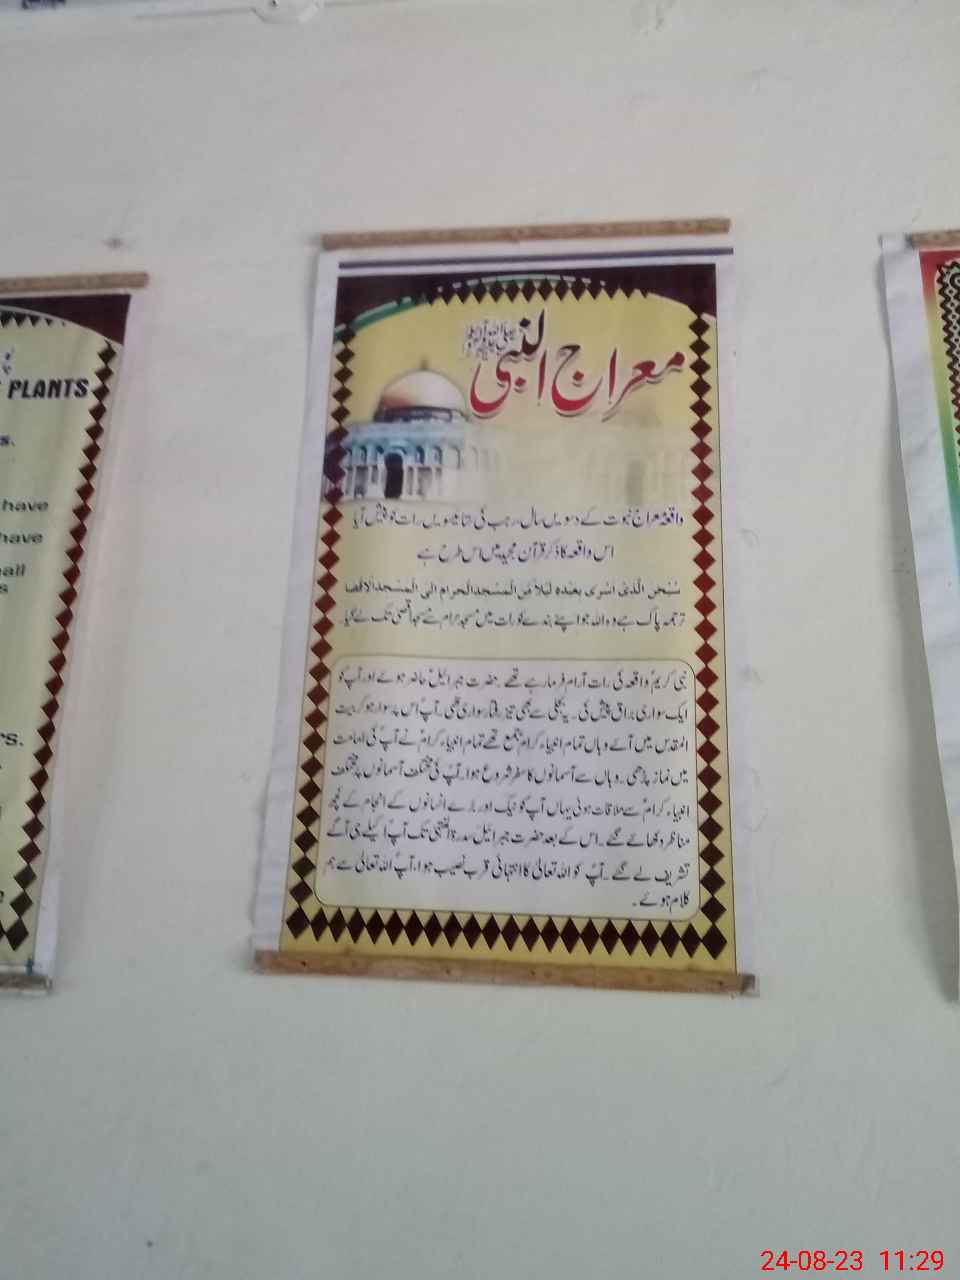 PLANTS
s.
have
have
all
s
rs.
معراج النبی ﷺ
واقعۂ معراج نبوت کے دسویں سال، رجب کی ستائیسویں رات کو پیش آیا
اس واقعہ کا ذکر قرآن مجید میں اس طرح ہے
سُبْحٰنَ الَّذِیْ اَسْرٰی بِعَبْدِہٖ لَیْلًا مِّنَ الْمَسْجِدِ الْحَرَامِ اِلَی الْمَسْجِدِ الْاَقْصَا
ترجمہ پاک ہے وہ اللہ جو اپنے بندے کو رات میں مسجد حرام سے مسجد اقصیٰ تک لے گیا۔
نبی کریمؐ واقعہ کی رات آرام فرما رہے تھے۔ حضرت جبرائیلؑ حاضر ہوئے اور آپؐ کو
ایک سواری براق پیش کی۔ یہ بجلی سے بھی تیز رفتار سواری تھی۔ آپؐ اس پر سوار ہو کر بیت
المقدس میں آئے وہاں تمام انبیاء کرامؑ جمع تھے تمام انبیاء کرامؑ نے آپؐ کی امامت
میں نماز پڑھی۔ وہاں سے آسمانوں کا سفر شروع ہوا۔ آپؐ کی مختلف آسمانوں پر مختلف
انبیاء کرامؑ سے ملاقات ہوئی یہاں آپؐ کو نیک اور بُرے انسانوں کے انجام کے کچھ
مناظر دکھائے گئے۔ اس کے بعد حضرت جبرائیلؑ سدرۃ المنتہیٰ تک آپؐ اکیلے ہی آگے
تشریف لے گئے۔ آپؐ کو اللہ تعالیٰ کا انتہائی قرب نصیب ہوا، آپؐ اللہ تعالیٰ سے ہم
کلام ہوئے۔
24-08-23 11:29